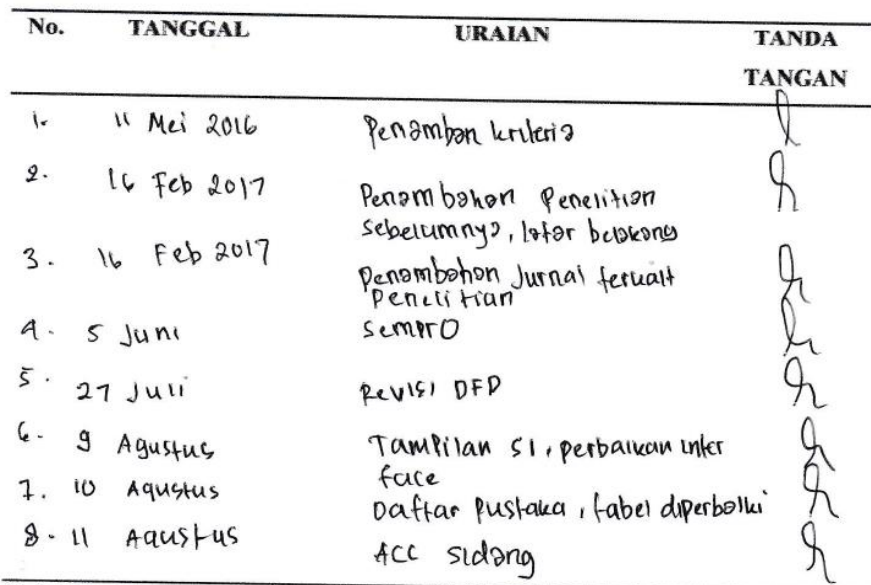 No. TANGGAL URAIAN TANDA
TANGAN
1. 11 Mei 2016 Penamban kriteria
2. 16 Feb 2017 Penambahan Penelitian
sebelumnya, latar belakang
3. 16 Feb 2017 Penambahan Jurnal terkait
Penelitian
4. 5 Juni sempro
5. 27 Juli Revisi DFD
6. 9 Agustus Tampilan SI, perbaikan inter
face
7. 10 Agustus Daftar Pustaka, tabel diperbaiki
8. 11 Agustus ACC sidang